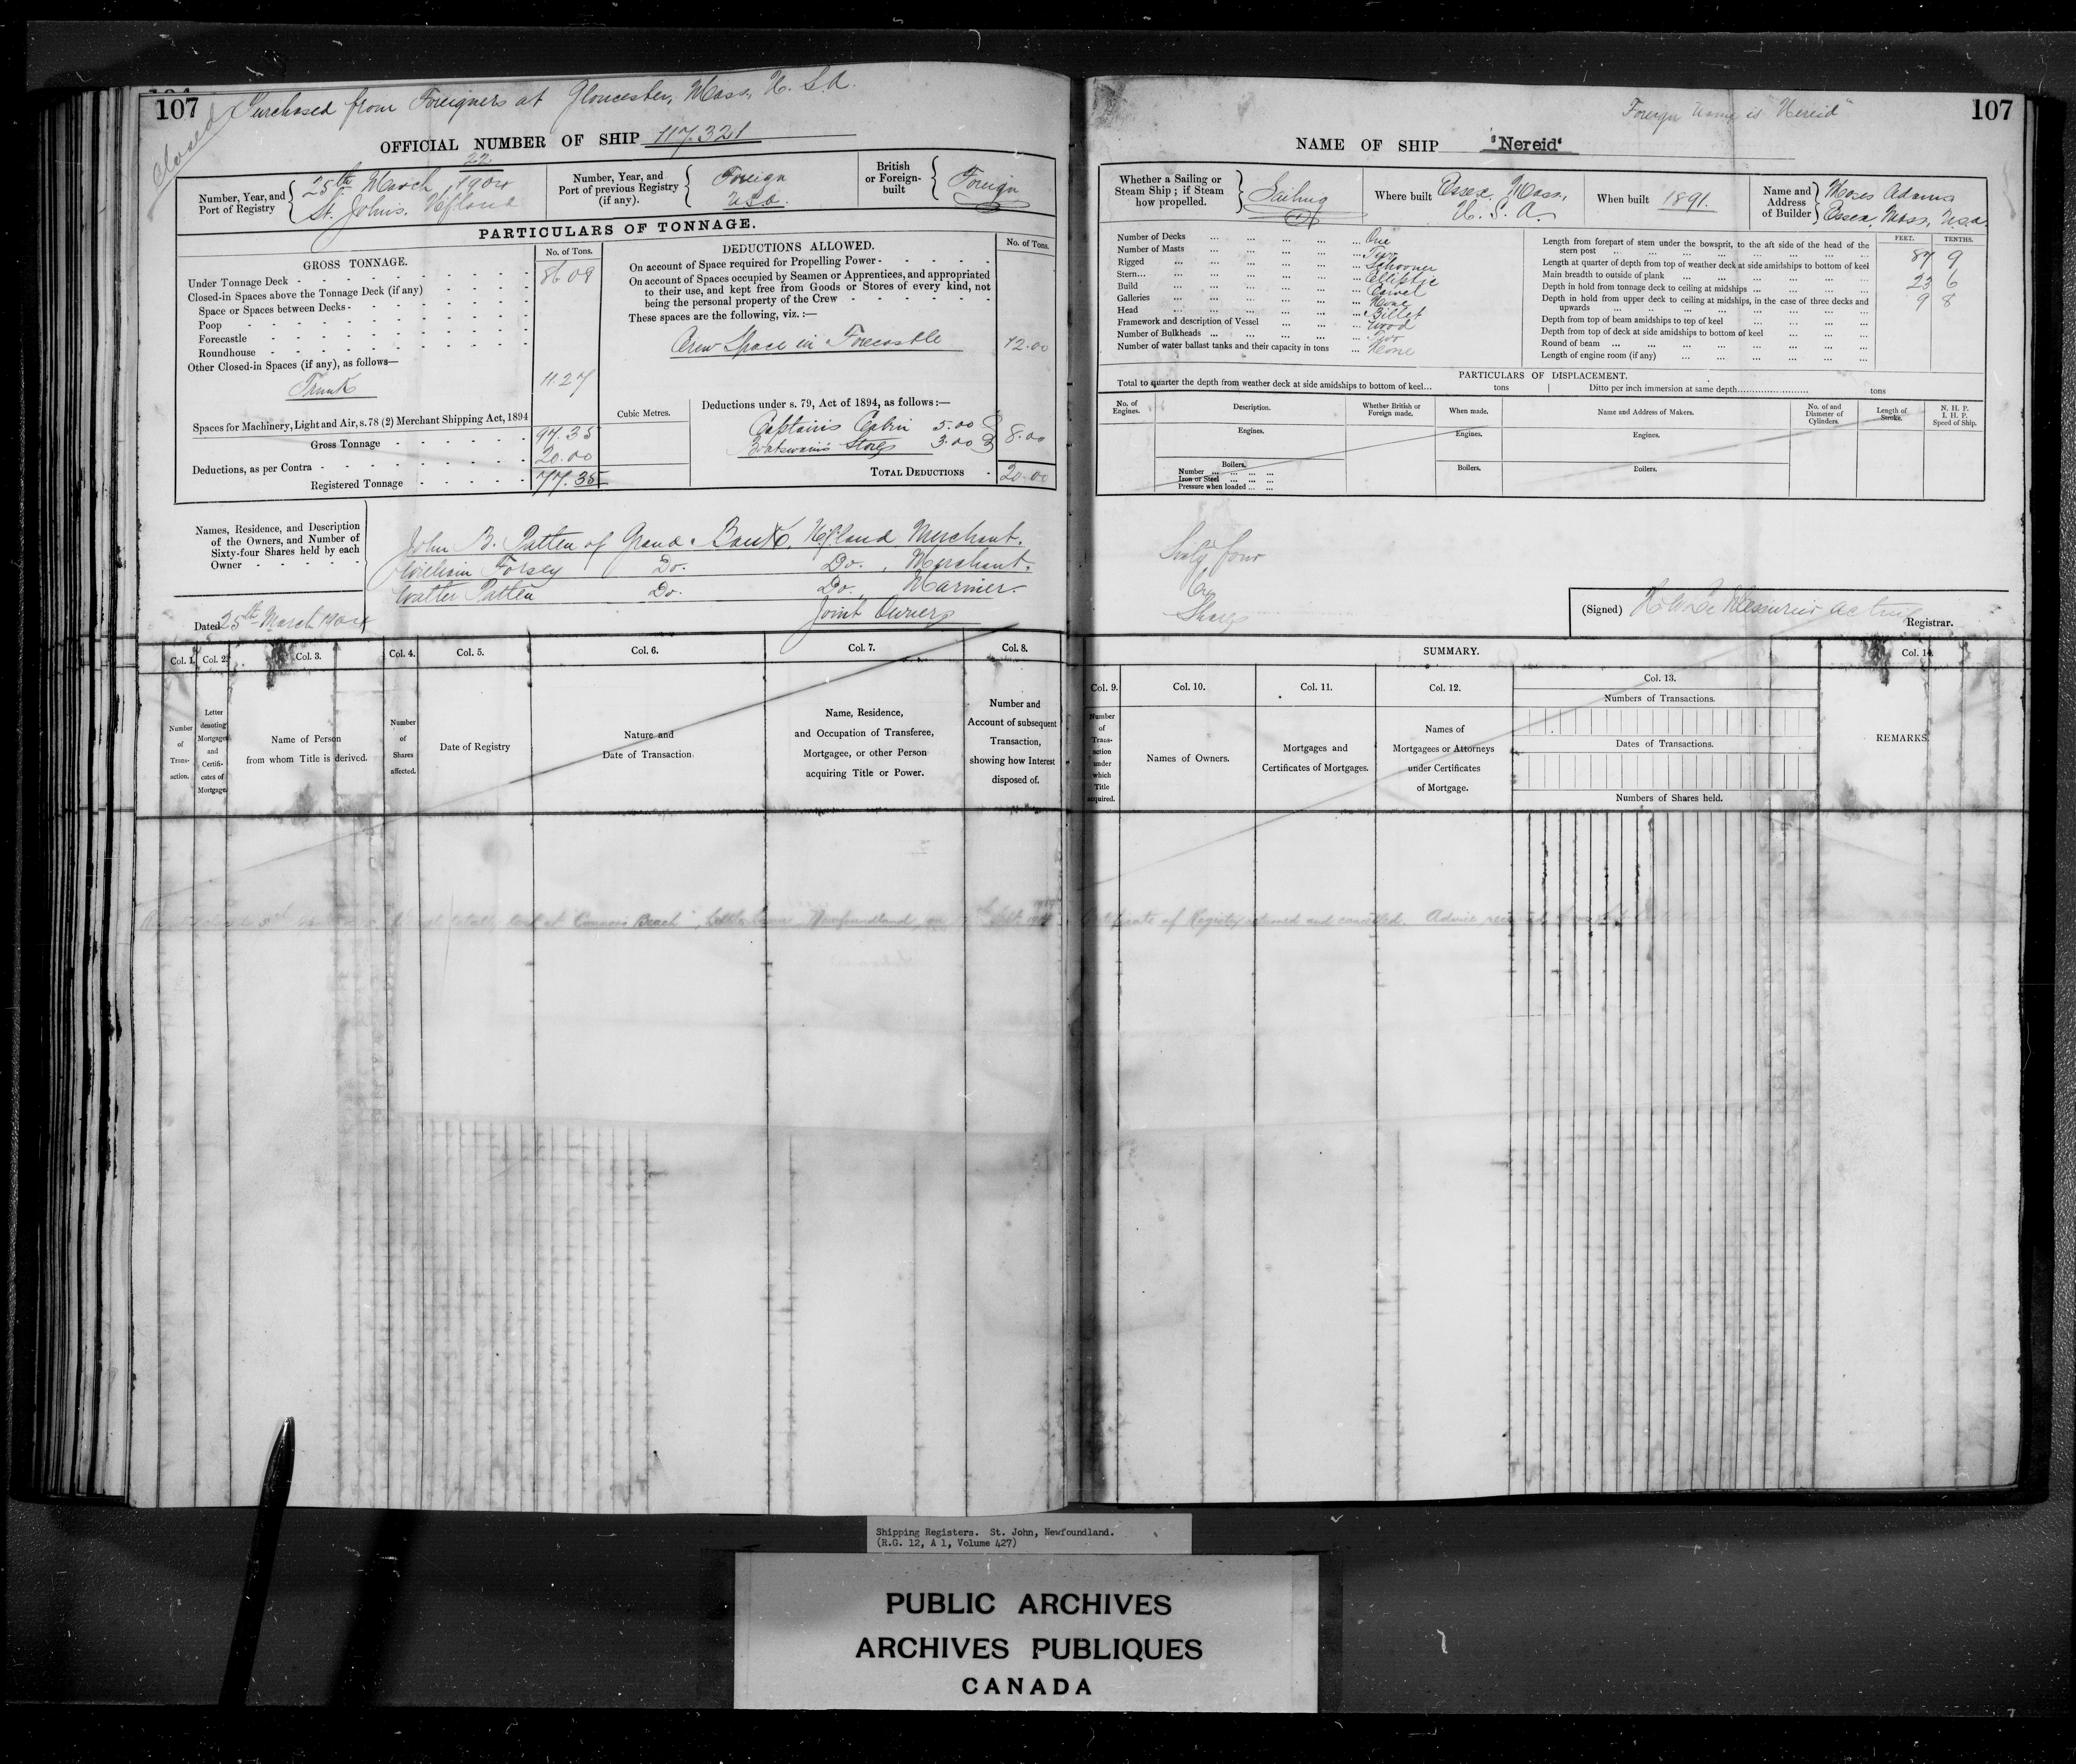 107
Closed
Purchased from Foreigners at Gloucester, Mass, U.S.A.
OFFICIAL NUMBER OF SHIP 117.321
22
Number, Year, and Port of Registry
25th March 1904
St. Johns. Nfland
Number, Year, and Port of previous Registry (if any).
Foreign
U.S.A.
British or Foreign-built
Foreign
PARTICULARS OF TONNAGE.
GROSS TONNAGE.
No. of Tons.
Under Tonnage Deck - 86.09
Closed-in Spaces above the Tonnage Deck (if any)
Space or Spaces between Decks -
Poop
Forecastle
Roundhouse
Other Closed-in Spaces (if any), as follows—
Trunk 11.27
Spaces for Machinery, Light and Air, s. 78 (2) Merchant Shipping Act, 1894
Cubic Metres.
Gross Tonnage 97.35
Deductions, as per Contra - 20.00
Registered Tonnage 77.35
DEDUCTIONS ALLOWED.
No. of Tons.
On account of Space required for Propelling Power -
On account of Spaces occupied by Seamen or Apprentices, and appropriated
to their use, and kept free from Goods or Stores of every kind, not
being the personal property of the Crew
These spaces are the following, viz. :—
Crew Space in Forecastle 12.00
Deductions under s. 79, Act of 1894, as follows :—
Captain's Cabin 5.00
Boatswain's Stores 3.00
8.00
TOTAL DEDUCTIONS 20.00
Names, Residence, and Description
of the Owners, and Number of
Sixty-four Shares held by each
Owner
John B. Patten of Grand Bank, Nfland, Merchant.
William Forsey Do. Do., Merchant.
Walter Patten Do. Do., Mariner.
Joint Owners
Dated 25th March 1904
Col. 1.
Col. 2.
Col. 3.
Col. 4.
Col. 5.
Col. 6.
Col. 7.
Col. 8.
Number of Transaction.
Letter denoting Mortgages and Certificates of Mortgage.
Name of Person from whom Title is derived.
Number of Shares affected.
Date of Registry
Nature and Date of Transaction.
Name, Residence, and Occupation of Transferee, Mortgagee, or other Person acquiring Title or Power.
Number and Account of subsequent Transaction, showing how Interest disposed of.
107
Foreign name is "Nereid"
NAME OF SHIP "Nereid"
Whether a Sailing or Steam Ship ; if Steam how propelled.
Sailing
Where built
Essex, Mass,
U. S. A.
When built 1891.
Name and Address of Builder
Moses Adams
Essex, Mass, U.S.A.
Number of Decks One
Number of Masts Two
Rigged Schooner
Stern Elliptic
Build Carvel
Galleries None
Head Billet
Framework and description of Vessel Wood
Number of Bulkheads Two
Number of water ballast tanks and their capacity in tons None
FEET. TENTHS.
Length from forepart of stem under the bowsprit, to the aft side of the head of the stern post 87 9
Length at quarter of depth from top of weather deck at side amidships to bottom of keel
Main breadth to outside of plank 23 6
Depth in hold from tonnage deck to ceiling at midships 9 8
Depth in hold from upper deck to ceiling at midships, in the case of three decks and upwards
Depth from top of beam amidships to top of keel
Depth from top of deck at side amidships to bottom of keel
Round of beam
Length of engine room (if any)
PARTICULARS OF DISPLACEMENT.
Total to quarter the depth from weather deck at side amidships to bottom of keel... tons
Ditto per inch immersion at same depth tons
No. of Engines.
Description.
Whether British or Foreign made.
When made.
Name and Address of Makers.
No. of and Diameter of Cylinders.
Length of Stroke.
N. H. P.
I. H. P.
Speed of Ship.
Engines.
Engines.
Engines.
Boilers.
Number
Iron or Steel
Pressure when loaded
Boilers.
Boilers.
Sixty four
Shares
(Signed) Registrar.
SUMMARY.
Col. 9.
Col. 10.
Col. 11.
Col. 12.
Col. 13.
Col. 14.
Number of Transaction under which Title acquired.
Names of Owners.
Mortgages and Certificates of Mortgages.
Names of Mortgagees or Attorneys under Certificates of Mortgage.
Numbers of Transactions.
Dates of Transactions.
Numbers of Shares held.
REMARKS.
totally lost at Newfoundland, on Certificate of Registry returned and cancelled. Advice received
Shipping Registers. St. John, Newfoundland.
(R.G. 12, A 1, Volume 427)
PUBLIC ARCHIVES
ARCHIVES PUBLIQUES
CANADA